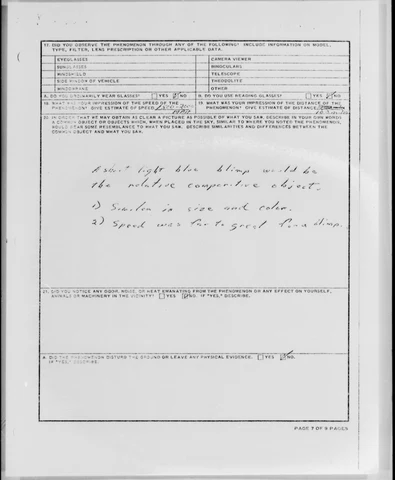 17. DID YOU OBSERVE THE PHENOMENON THROUGH ANY OF THE FOLLOWING? INCLUDE INFORMATION ON MODEL, TYPE, FILTER, LENS PRESCRIPTION OR OTHER APPLICABLE DATA.
EYEGLASSES CAMERA VIEWER
SUNGLASSES BINOCULARS
WINDSHIELD TELESCOPE
SIDE WINDOW OF VEHICLE THEODOLITE
WINDOWPANE OTHER
A. DO YOU ORDINARILY WEAR GLASSES? YES NO B. DO YOU USE READING GLASSES? YES NO
18. WHAT WAS YOUR IMPRESSION OF THE SPEED OF THE PHENOMENON? GIVE ESTIMATE OF SPEED
19. WHAT WAS YOUR IMPRESSION OF THE DISTANCE OF THE PHENOMENON? GIVE ESTIMATE OF DISTANCE
20. IN ORDER THAT WE MAY OBTAIN AS CLEAR A PICTURE AS POSSIBLE OF WHAT YOU SAW, DESCRIBE IN YOUR OWN WORDS
A COMMON OBJECT OR OBJECTS WHICH, WHEN PLACED IN THE SKY, SIMILAR TO WHERE YOU NOTED THE PHENOMENON,
WOULD BEAR SOME RESEMBLANCE TO WHAT YOU SAW. DESCRIBE SIMILARITIES AND DIFFERENCES BETWEEN THE
COMMON OBJECT AND WHAT YOU SAW.
light blue blimp would be
the relative object.
1) Similar in size and color.
2) Speed was far to great for a blimp.
21. DID YOU NOTICE ANY ODOR, NOISE, OR HEAT EMANATING FROM THE PHENOMENON OR ANY EFFECT ON YOURSELF,
ANIMALS OR MACHINERY IN THE VICINITY? YES NO. IF "YES," DESCRIBE.
A. DID THE PHENOMENON DISTURB THE GROUND OR LEAVE ANY PHYSICAL EVIDENCE. YES NO.
IF "YES," DESCRIBE.
PAGE 7 OF 9 PAGES